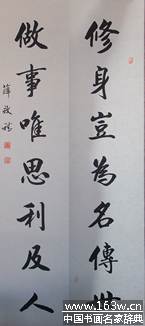 修身豈為名傳世
做事唯思利及人
www.163w.cn
中国书画名家辞典